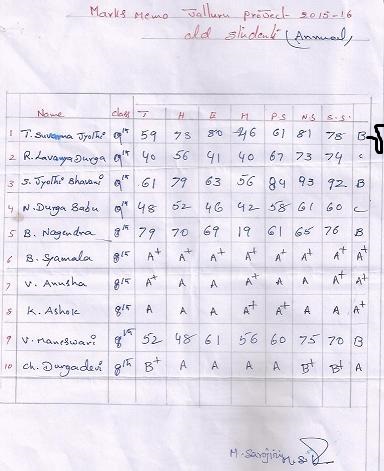 Marks Memo Valluru project 2015-16
old students (Annual)
Name class T H E M P.S N.S S.S.
1 T. Suvarna Jyothi 9th 59 78 80 46 61 81 78 B
2 R. Lavanya Durga 9th 40 56 41 40 67 73 74 C
3 S. Jyothi Bhavani 9th 61 79 63 56 84 93 92 B
4 N. Durga Babu 9th 48 52 46 42 58 61 60 C
5 B. Nagendra 8th 79 70 69 19 61 65 76 B
6 B. Syamala 8th A+ A+ A+ A+ A+ A+ A+ A+
7 V. Anusha 8th A+ A A A+ A+ A A+ A+
8 K. Ashok 8th A A A A+ A+ A A A+
9 V. Maneswari 8th 52 48 61 56 60 75 70 B
10 Ch. Durgadevi 8th B+ A A A A B+ B+ A
M. Sarojini